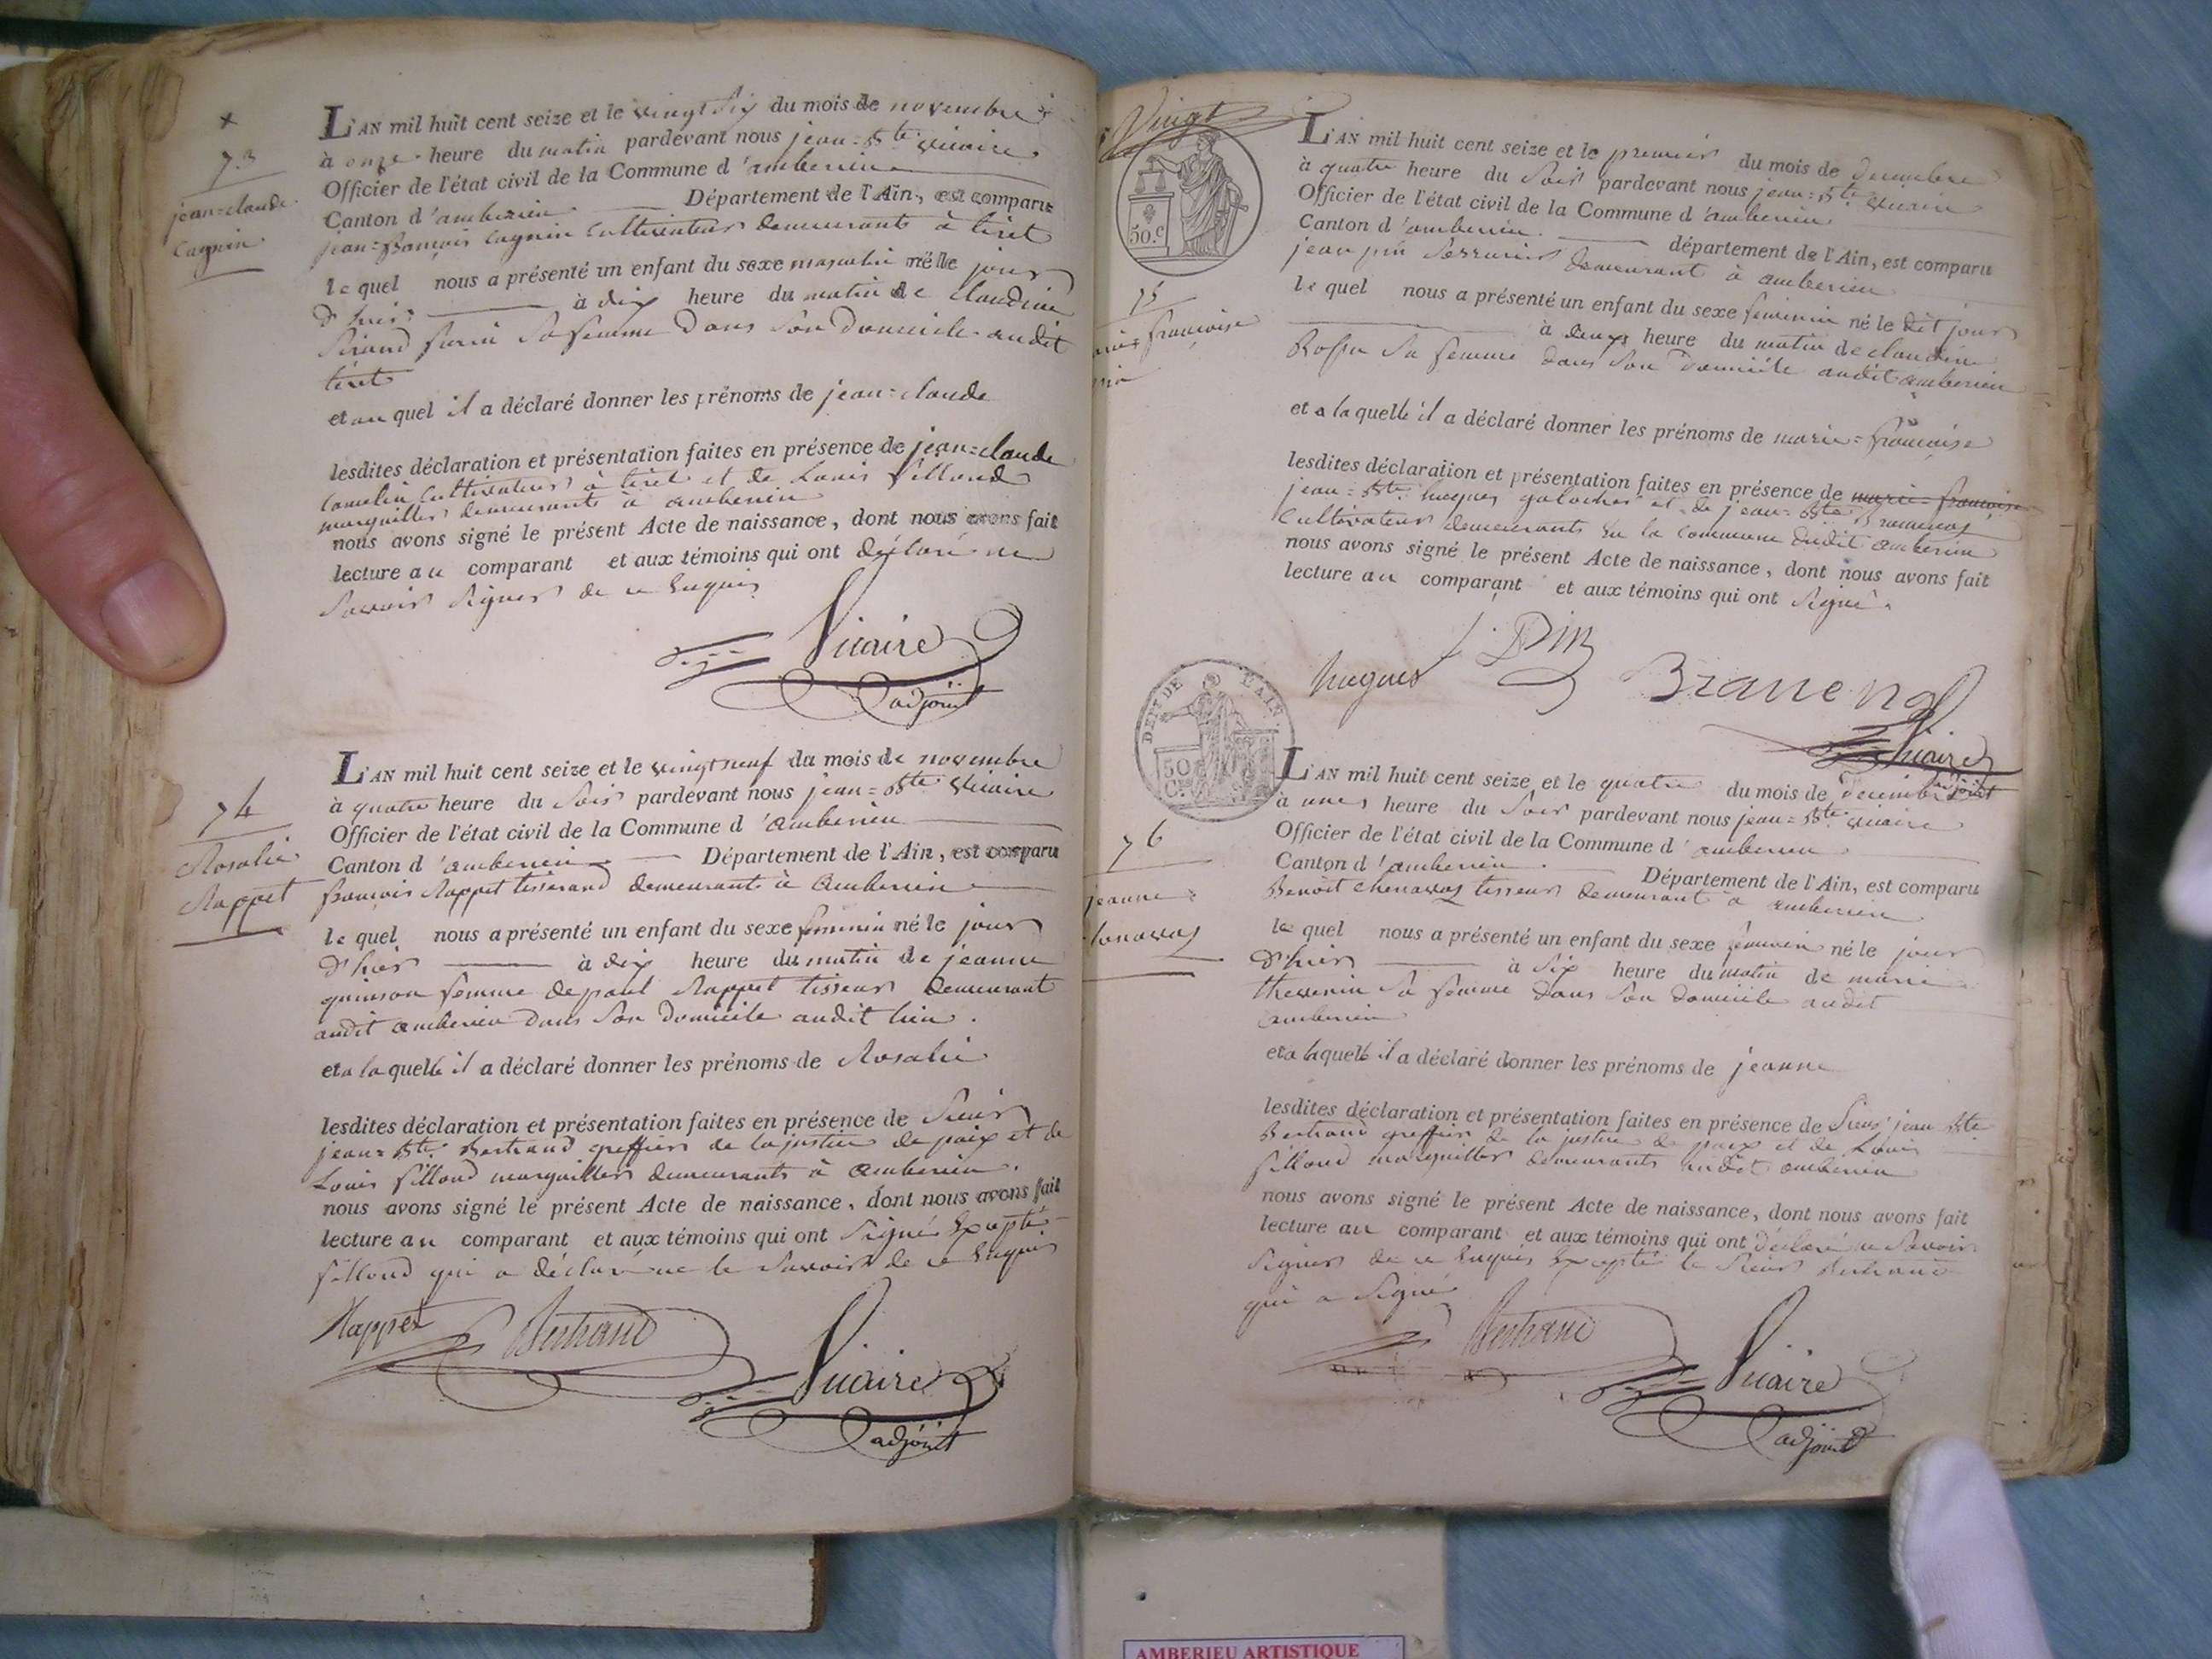 x
73
jean=claude
Cagnin
L'AN mil huit cent seize et le vingt six du mois de novembre
à onze heure du matin pardevant nous jean=Bte Vicaire
Officier de l'état civil de la Commune d'amberieu
Canton d'amberieu Département de l'Ain, est comparu
jean=françois Cagnin Cultivateur demeurant à tiret
le quel nous a présenté un enfant du sexe masculin né le jour
d'hier à dix heure du matin de Claudine
femme dans son domicile audit
tiret
et au quel il a déclaré donner les prénoms de jean=claude
lesdites déclaration et présentation faites en présence de jean=claude
Camelin Cultivateur à tiret et de Louis fillond
marguillier demeurants à amberieu
nous avons signé le présent Acte de naissance, dont nous avons fait
lecture au comparant et aux témoins qui ont déclaré ne
savoir signer de ce enquis
Vicaire
adjoint
74
Rosalie
Rappet
L'AN mil huit cent seize et le vingt neuf du mois de novembre
à quatre heure du soir pardevant nous jean=Bte Vicaire
Officier de l'état civil de la Commune d'amberieu
Canton d'amberieu Département de l'Ain, est comparu
françois Rappet tisserand demeurant à amberieu
le quel nous a présenté un enfant du sexe feminin né le jour
d'hier à dix heure du matin de jeanne
quinson femme de paul Rappet tisseur demeurant
audit amberieu dans son domicile audit lieu.
et a la quelle il a déclaré donner les prénoms de Rosalie
lesdites déclaration et présentation faites en présence de Sieur
jean=Bte Bertrand greffier de la justice de paix et de
Louis fillond marguillier demeurants à amberieu.
nous avons signé le présent Acte de naissance, dont nous avons fait
lecture au comparant et aux témoins qui ont signé excepté
fillond qui a déclaré ne le savoir de ce enquis
Rappet Bertrand
Vicaire
adjoint
Vingt
50.c
75
françoise
L'AN mil huit cent seize et le premier du mois de decembre
à quatre heure du soir pardevant nous jean=Bte Vicaire
Officier de l'état civil de la Commune d'amberieu
Canton d'amberieu. département de l'Ain, est comparu
jean pin serrurier demeurant à amberieu
le quel nous a présenté un enfant du sexe feminin né le dit jour
à deux heure du matin de claudine
sa femme dans son domicile audit amberieu
et a la quelle il a déclaré donner les prénoms de marie=françoise
lesdites déclaration et présentation faites en présence de marie=françoise
jean=Bte hugues galocher et de jean=Bte
Cultivateur demeurants en la commune dudit amberieu
nous avons signé le présent Acte de naissance, dont nous avons fait
lecture au comparant et aux témoins qui ont signé.
hugues
Vicaire
adjoint
DEPT DE L'AIN
50
C.
76
jeanne=
L'AN mil huit cent seize et le quatre du mois de decembre
à une heure du soir pardevant nous jean=Bte Vicaire
Officier de l'état civil de la Commune d'amberieu
Canton d'amberieu. Département de l'Ain, est comparu
Benoit Chenavaz tisseur demeurant à amberieu
le quel nous a présenté un enfant du sexe feminin né le jour
d'hier à six heure du matin de marie
thevenin sa femme dans son domicile audit
amberieu
et a laquelle il a déclaré donner les prénoms de jeanne
lesdites déclaration et présentation faites en présence de Sieur jean Bte
Bertrand greffier de la justice de paix et de Louis
fillond marguillier demeurants audit amberieu
nous avons signé le présent Acte de naissance, dont nous avons fait
lecture au comparant et aux témoins qui ont déclaré ne savoir
signer de ce enquis excepté le Sieur Bertrand
qui a signé
Bertrand
Vicaire
adjoint
AMBERIEU ARTISTIQUE